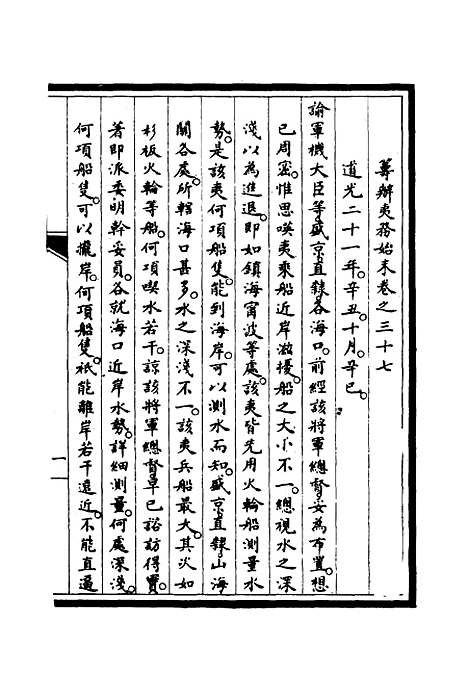 籌辦夷務始末卷之三十七
道光二十一年。辛丑。十月。辛巳。
諭軍機大臣等。盛京。直隸。各海口。前經該將軍總督妥為布置。想
已周密。惟思𠸄夷乘船近岸滋擾。船之大小不一。總視水之深
淺以為進退。即如鎮海甯波等處。該夷皆先用火輪船測量水
勢。是該夷何項船隻。能到海岸。可以測水而知。盛京。直隸。山海
關各處。所轄海口甚多。水之深淺不一。該夷兵船最大。其火如
杉板火輪等船。何項喫水若干。諒該將軍總督早已諮訪得實。
著即派委明幹妥員。各就海口近岸水勢。詳細測量。何處深淺。
何項船隻。可以攏岸。何項船隻。祇能離岸若干遠近。不能直逼
一